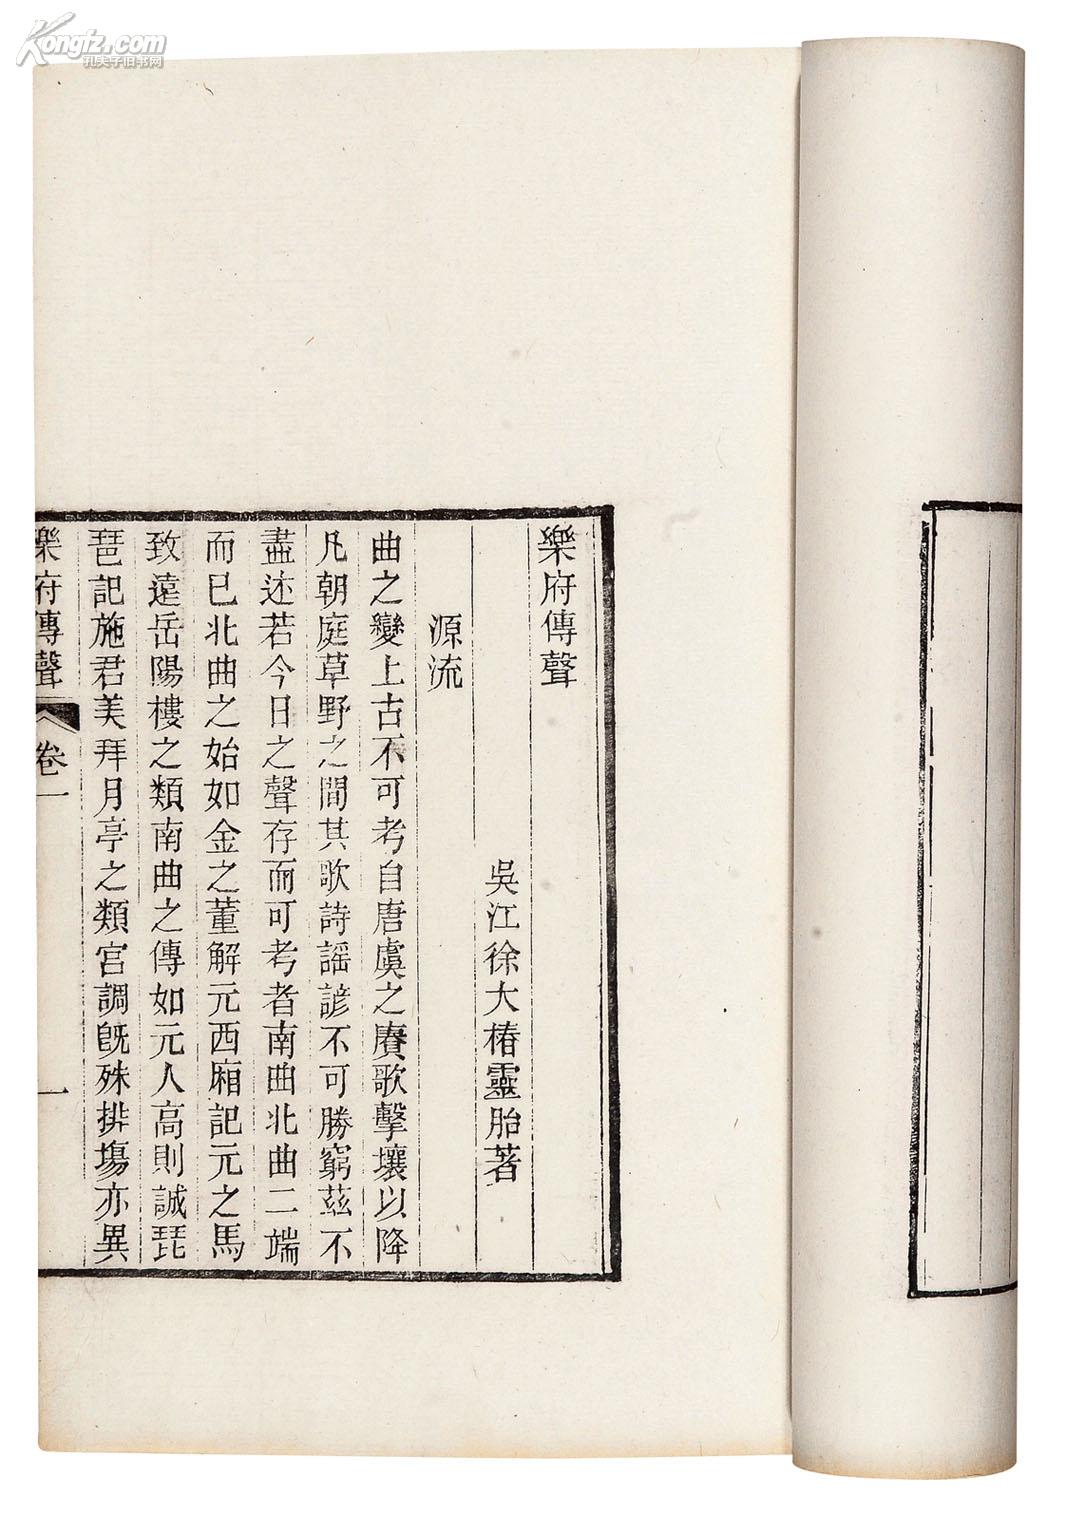 Kongfz.com
孔夫子旧书网
樂府傳聲
吳江徐大椿靈胎著
源流
曲之變上古不可考自唐虞之賡歌擊壤以降
凡朝庭草野之間其歌詩謠諺不可勝窮茲不
盡述若今日之聲存而可考者南曲北曲二端
而已北曲之始如金之董解元西廂記元之馬
致遠岳陽樓之類南曲之傳如元人高則誠琵
琶記施君美拜月亭之類宮調旣殊排塲亦異
樂府傳聲
卷一
一